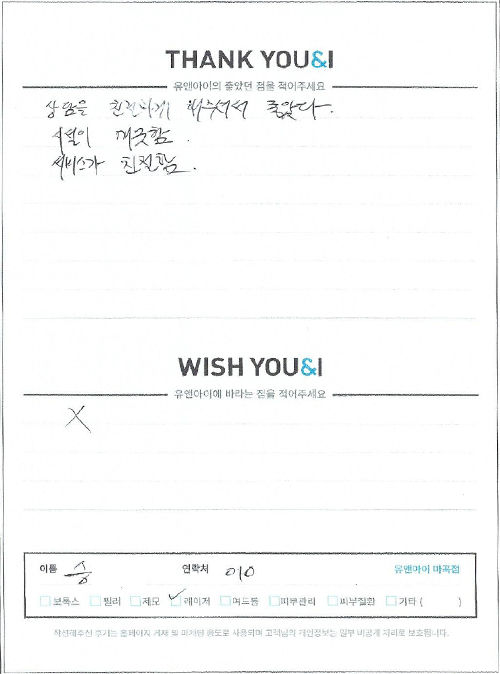 THANK YOU&I
유앤아이의 좋았던 점을 적어주세요
상담을 친절하게 해주셔서 좋았다.
시설이 깨끗함.
서비스가 친절함.
WISH YOU&I
유앤아이에 바라는 점을 적어주세요
X
이름 승 연락처 010 유앤아이 마곡점
보톡스 필러 제모 ✓레이저 여드름 피부관리 피부질환 기타 ( )
작성해주신 후기는 홈페이지 게재 및 마케팅 용도로 사용되며 고객님의 개인정보는 일부 비공개 처리로 보호됩니다.